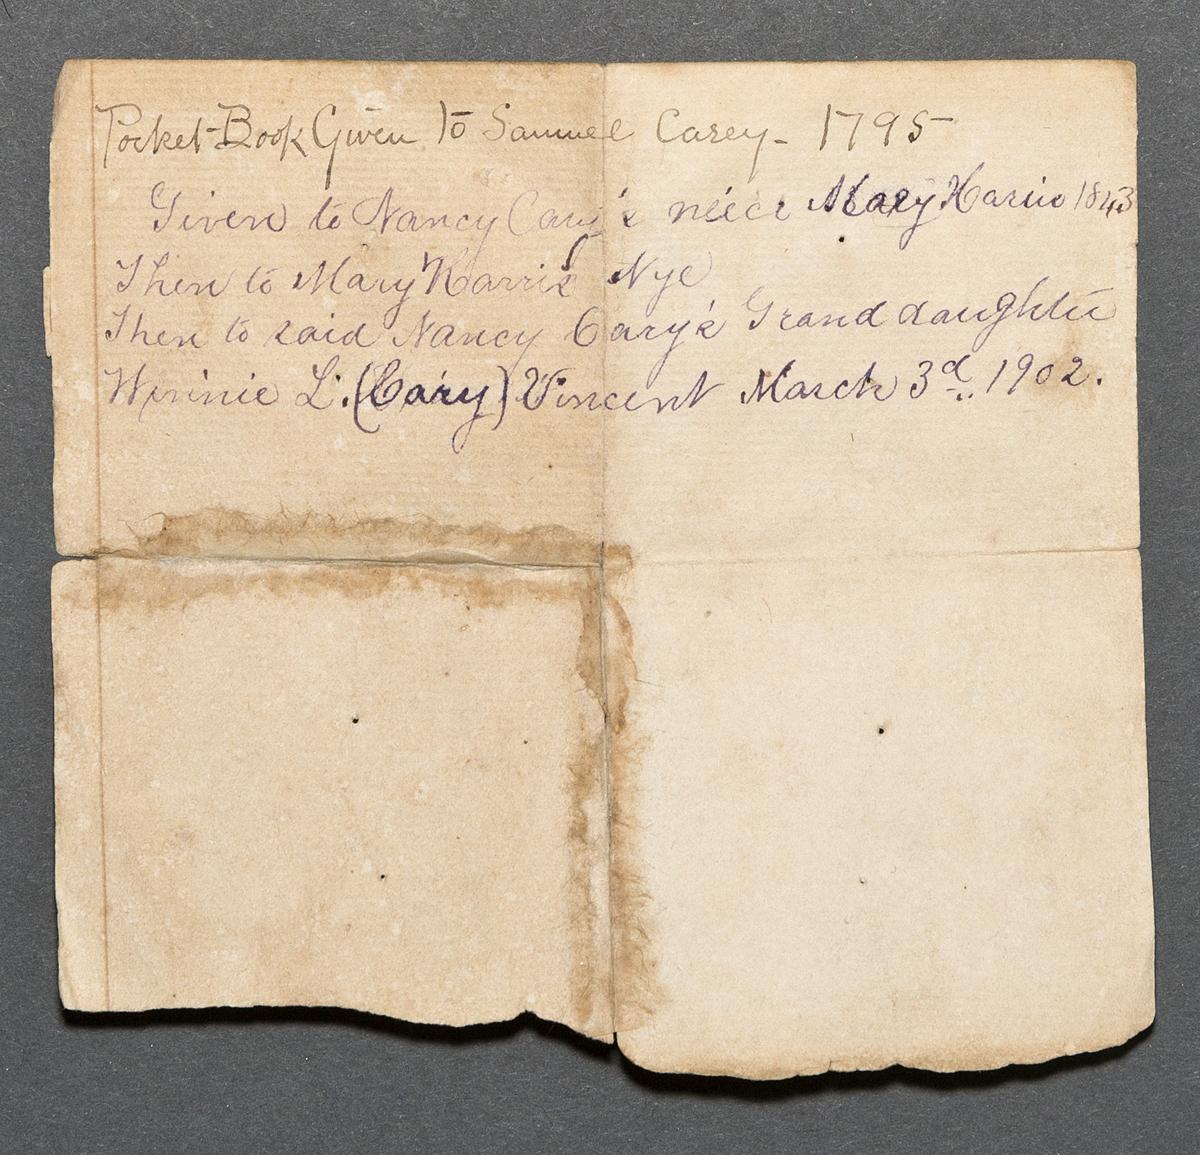 Pocket-Book Given to Samuel Casey - 1795
Given to Nancy Cary's neice Mary Harris 1843
Then to Mary Harris Nye
Then to said Nancy Cary's Grand daughter
Winnie L. (Cary) Vincent March 3d, 1902.